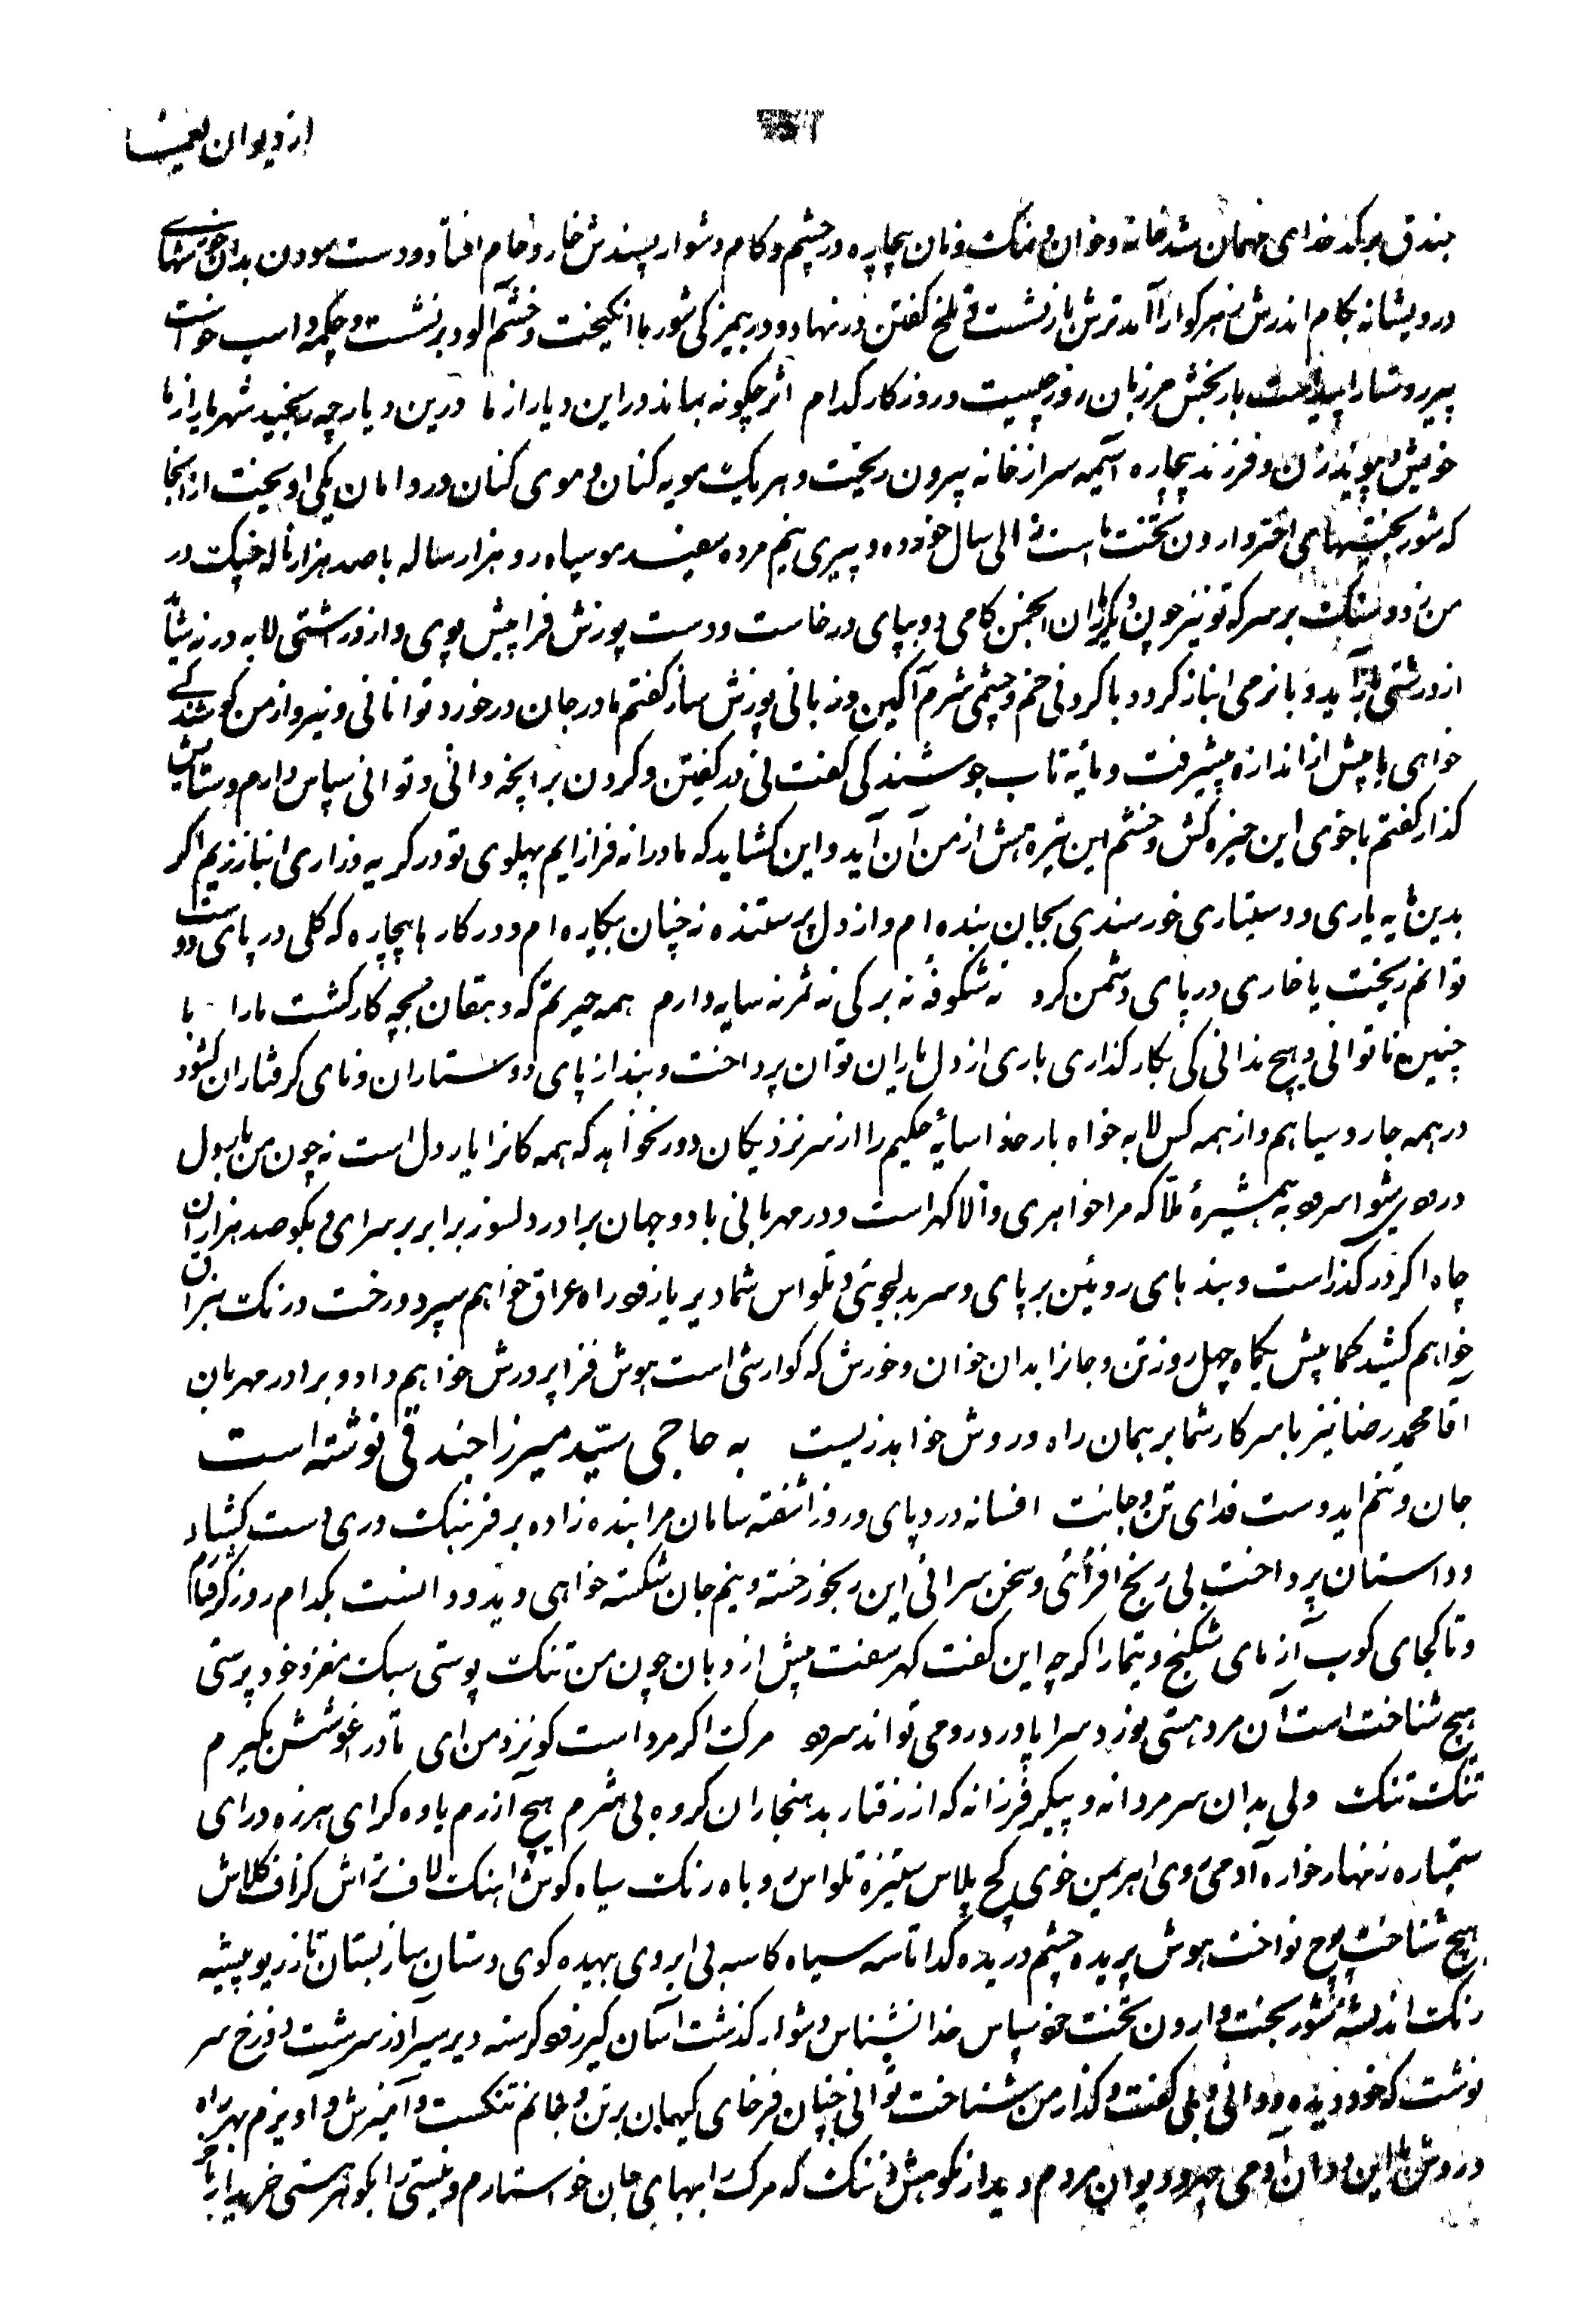 از دیوان یغما
جندق بر کدخدای مهمان شد خانه و خوان و منک و نان بیچاره در چشم و کام دشوار پسندش خار و خام افتاد و دست سودن بدان خوشهای
درویشانه بکام اندرش زهر کوارا آمد ترش باز نشست و تلخ گفتن در نهاد و در بمیز کی شور با انگیخت و خشم آلود برنشست و چکمه و اسب خواست
بار بخش مرزبان روز چیست و روزکار کدام اثر چکونه بماند در این دیار از ما درین دیار چه سنجید شهریار از ما
خویش و پیوند زن و فرزند بیچاره آسیمه سر از خانه بیرون ریخت و هر یک مویه کنان و موی کنان در دامان یکی آویخت از انجا
که شور بختیهای اختر وارون تخت ماست الی سال خورده و پیری نیم مرده سفید مو سیاه رو هزار ساله با صد هزار ناله خپک در
من زد و سنک بر سر که تو نیز چون دیگران انجمن کامی دو بپای در خاست و دست پوزش فرا پیش پوی و از در آشتی لابه در نه شاید
از درشتی باز آید و با نرمی انباز کردد با کردنی خم و چشمی شرم آکین و زبانی پوزش ساز کفتم مادر جان در خورد توانائی و نیرو از من کوشندکی
خواهی یا پیش از اندازه پیشرفت و مایه تاب جوشندکی کفت نی در کفتن و کردن بر آنچه دانی و توانی سپاس دارم و ستایش
کذار کفتم با خوی این خیره کش و خشم این تیره هش از من آن آید و این کشاید که مادرانه فراز ایم پهلوی تو در کریه و زاری انباز زیم اکر
بدین مایه یاری و دوستاری خورسندی بجان بنده ام و از دل پرستنده نه چنان بیکاره ام و در کارها بیچاره که کلی در پای دوست
توانم ریخت یا خاری در پای دشمن کرد نه شکوفه نه برکی نه ثمر نه سایه دارم همه حیرتم که دهقان بچه کار کشت ما را با
چنین ناتوانی و هیچ ندانی کی بکار کذاری باری از دل یاران توان پرداخت و بند از پای دوستاران و نای کرفتاران کشود
در همه جا رو سیاهم و از همه کس لابه خواه بار خدا سایه حکیم را از سر نزدیکان دور نخواهد که همه کانرا یار دل است نه چون من بار دل
درود بی شمار به همشیره ملا که مرا خواهری والا کهر است و در مهربانی با دو جهان برادر دلسوز برابر بر سرای و بکو صد هزاران
چاه اکر در کذر است و بند های روئین بر پای و سر بدلجوئی و تلواس شما دیر یا زود راه عراق خواهم سپرد و رخت درنک بیران
خواهم کشید کما بیش یکماه چهل روز تن و جانرا بدان خوان و خورش که کوارشی است هوش فزا پرورش خواهیم داد و برادر مهربان
آقا محمد رضا نیز با سرکار شما بر همان راه و روش خواهد زیست به حاجی سید میرزا جندقی نوشته است
جان و تنم ایدوست فدای تن و جانت افسانه درد پای و روز آشفته سامان مرا بنده زاده بر فرهنک دری دست کشاد
و داستان پرداخت بی رنج افزائی و سخن سرائی این رنجور خسته و نیم جان شکسته خواهی دید و دانست بکدام روز کرفتارم
و تا کجای کوب آزمای شکنج و تیمار اکر چه این کفت کهر سفت پیش از دهان چون من تنک پوستی سبک مغز و خود پرستی
هیچ شناخت است آن مرد هستی یوز و سراپا درد رو می تواند سرود مرک اکر مرد است کو نزد من آی تا در آغوشش بکیرم
تنک تنک ولی بدان سر مردانه و پیکر فرزانه که از رفتار بد هنجاران کروه بی شرم هیچ آزرم یاوه کرای هرزه درای
ستمباره زنهار خواره آدمی روی اهریمن خوی کج پلاس ستیزه تلواس روباه رنک سیاه کوش آهنک لاف تراش کزاف کلاش
هیچ شناخت پوچ نواخت هوش پریده چشم دریده کدا تاسه سیاه کاسه بی ابروی بیهده کوی دستان ساز بستان تاز ریو پیشه
رنک اندیشه شور بخت وارون تخت خود سپاس خدا نشناس دشوار کذشت آسان کیر زود کرسنه دیر سیر آذر سرشت دوزخ سر
نوشت که خود دیده و دانی و بلی کفت و کذار من شناخت توانی چنان فرخای کیهان بر تن و جانم تنکست و آمیزش و آویزم بهر راه
در روش با این دان آدمی چهر و دیوان مردم دید از نکوهش و ننک که مرک را بهای جان خواستارم و نیستی را بکوهر هستی خریدار